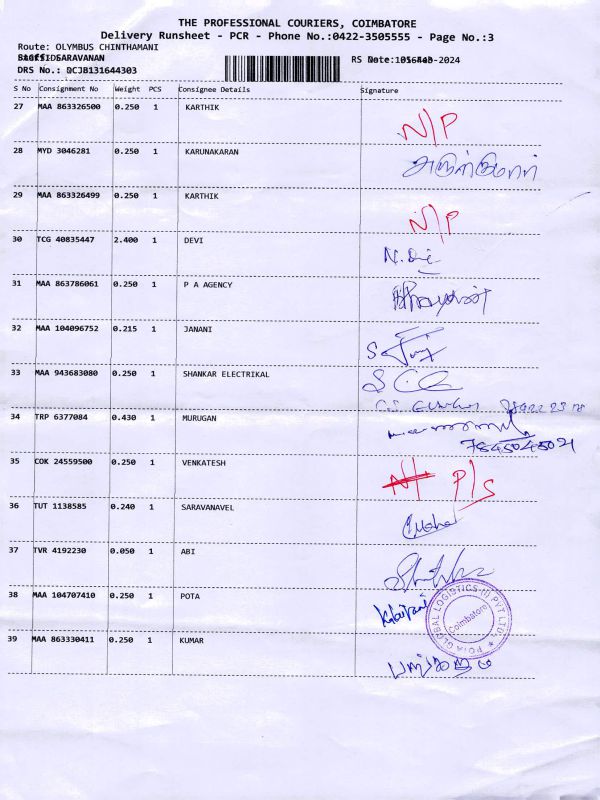 THE PROFESSIONAL COURIERS, COIMBATORE
Delivery Runsheet - PCR - Phone No.:0422-3505555 - Page No.:3
Route: OLYMBUS CHINTHAMANI
SARAVANAN
DRS No.: QCJB131644303
S No Consignment No Weight PCS Consignee Details Signature
27 MAA 863326500 0.250 1 KARTHIK N/P
28 MYD 3046281 0.250 1 KARUNAKARAN
29 MAA 863326499 0.250 1 KARTHIK N/P
30 TCG 40835447 2.400 1 DEVI
31 MAA 863786061 0.250 1 P A AGENCY
32 MAA 104096752 0.215 1 JANANI
33 MAA 943683080 0.250 1 SHANKAR ELECTRIKAL
34 TRP 6377084 0.430 1 MURUGAN
35 COK 24559500 0.250 1 VENKATESH P/S
36 TUT 1138585 0.240 1 SARAVANAVEL
37 TVR 4192230 0.050 1 ABI
38 MAA 104707410 0.250 1 POTA
39 MAA 863330411 0.250 1 KUMAR
GLOBAL LOGISTICS (I) PVT LTD
Coimbatore